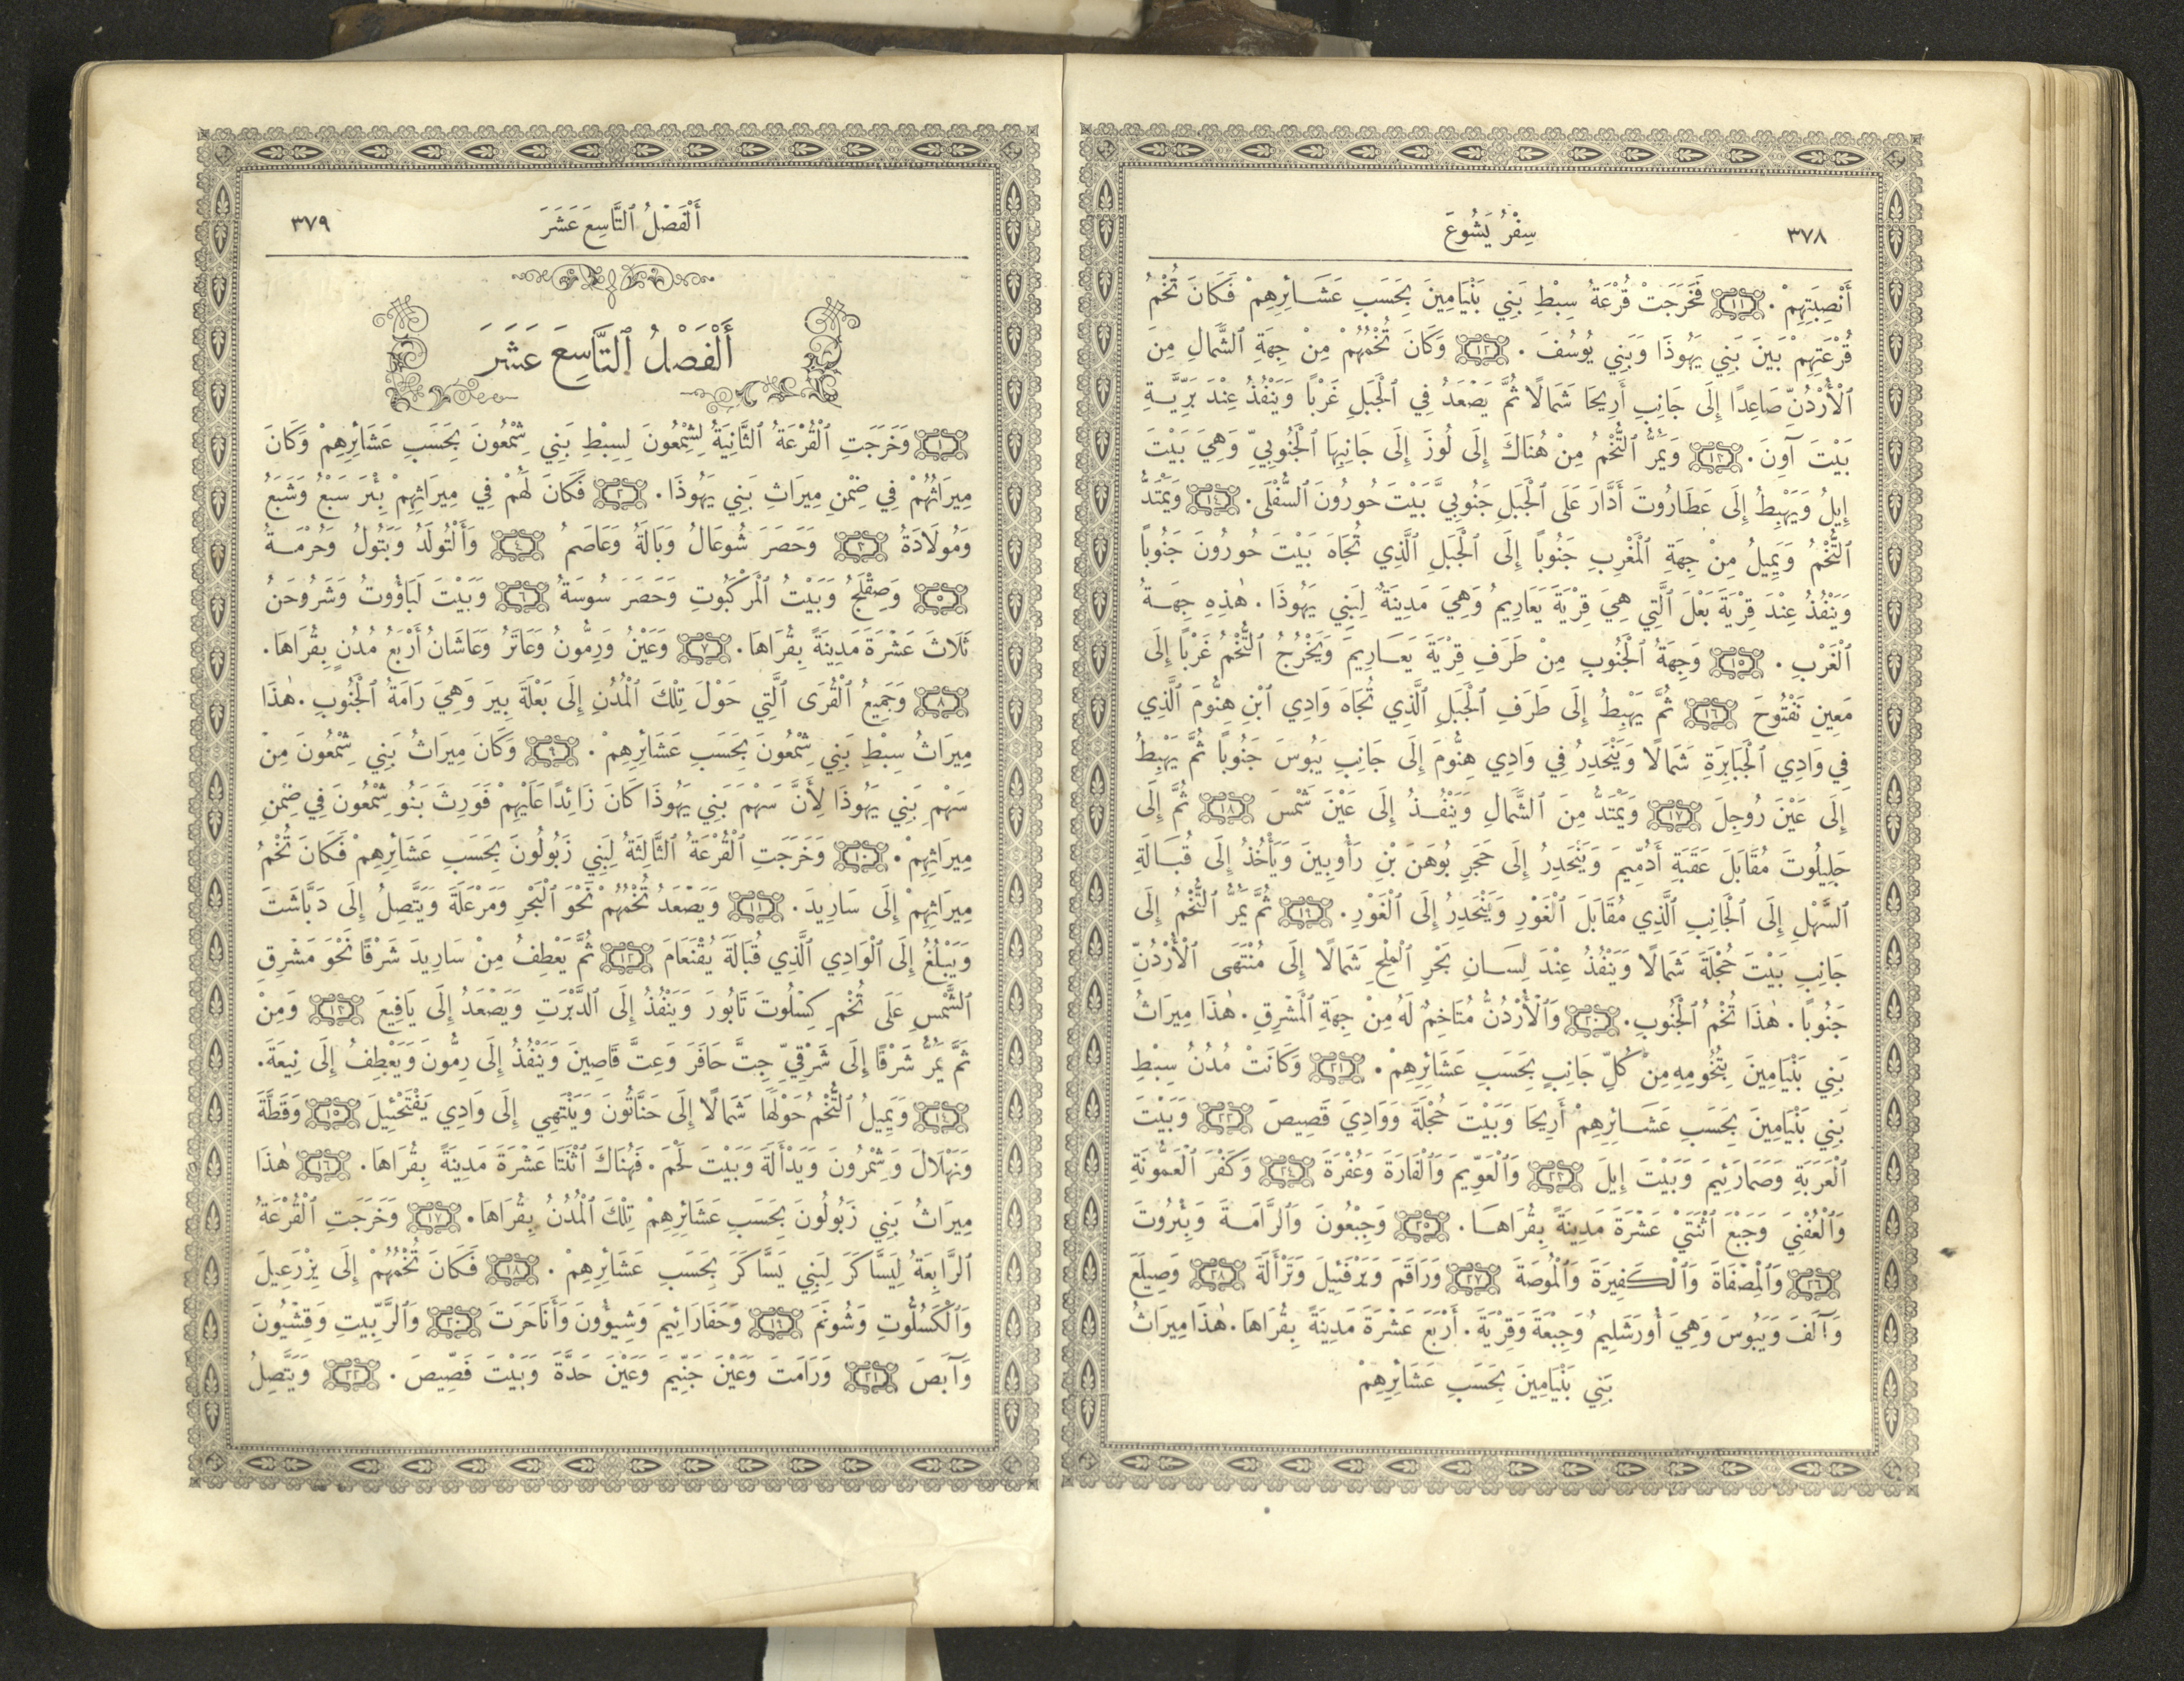 ٣٧٨
سِفْرُ يَشُوعَ
أَنْصِبَتِهِمْ . ١١ فَخَرَجَتْ قُرْعَةُ سِبْطِ بَنِي بَنْيَامِينَ بِحَسَبِ عَشَائِرِهِمْ فَكَانَ تُخْمُ
قُرْعَتِهِمْ بَيْنَ بَنِي يَهُوذَا وَبَنِي يُوسُفَ . ١٢ وَكَانَ تُخْمُهُمْ مِنْ جِهَةِ ٱلشَّمَالِ مِنَ
ٱلْأُرْدُنِّ صَاعِدًا إِلَى جَانِبِ أَرِيحَا شَمَالًا ثُمَّ يَصْعَدُ فِي ٱلْجَبَلِ غَرْبًا وَيَنْفُذُ عِنْدَ بَرِّيَّةِ
بَيْتَ آوِنَ . ١٣ وَيَمُرُّ ٱلتُّخْمُ مِنْ هُنَاكَ إِلَى لُوزَ إِلَى جَانِبِهَا ٱلْجَنُوبِيِّ وَهِيَ بَيْتَ
إِيلُ وَيَهْبِطُ إِلَى عَطَارُوتَ أَدَّارَ عَلَى ٱلْجَبَلِ جَنُوبِيَّ بَيْتَ حُورُونَ ٱلسُّفْلَى . ١٤ وَيَمْتَدُّ
ٱلتُّخْمُ وَيَمِيلُ مِنْ جِهَةِ ٱلْمَغْرِبِ جَنُوبًا إِلَى ٱلْجَبَلِ ٱلَّذِي تُجَاهَ بَيْتَ حُورُونَ جَنُوبًا
وَيَنْفُذُ عِنْدَ قِرْيَةَ بَعْلَ ٱلَّتِي هِيَ قِرْيَةَ يَعَارِيمُ وَهِيَ مَدِينَةٌ لِبَنِي يَهُوذَا . هٰذِهِ جِهَةُ
ٱلْغَرْبِ . ١٥ وَجِهَةُ ٱلْجَنُوبِ مِنْ طَرَفِ قِرْيَةَ يَعَارِيمَ وَيَخْرُجُ ٱلتُّخْمُ غَرْبًا إِلَى
مَعِينِ نَفْتُوحَ ١٦ ثُمَّ يَهْبِطُ إِلَى طَرَفِ ٱلْجَبَلِ ٱلَّذِي تُجَاهَ وَادِي ٱبْنِ هِنُّومَ ٱلَّذِي
فِي وَادِي ٱلْجَبَابِرَةِ شَمَالًا وَيَنْحَدِرُ فِي وَادِي هِنُّومَ إِلَى جَانِبِ يَبُوسَ جَنُوبًا ثُمَّ يَهْبِطُ
إِلَى عَيْنَ رُوجِلَ ١٧ وَيَمْتَدُّ مِنَ ٱلشَّمَالِ وَيَنْفُذُ إِلَى عَيْنَ شَمْسَ ١٨ ثُمَّ إِلَى
جَلِيلُوتَ مُقَابَلَ عَقَبَةِ أَدُمِّيمَ وَيَنْحَدِرُ إِلَى حَجَرِ بُوهَنَ بْنِ رَأُوبِينَ وَيَأْخُذُ إِلَى قُبَالَةِ
ٱلسَّهْلِ إِلَى ٱلْجَانِبِ ٱلَّذِي مُقَابَلَ ٱلْغَوْرِ وَيَنْحَدِرُ إِلَى ٱلْغَوْرِ . ١٩ ثُمَّ يَمُرُّ ٱلتُّخْمُ إِلَى
جَانِبِ بَيْتَ حُجْلَةَ شَمَالًا وَيَنْفُذُ عِنْدَ لِسَانِ بَحْرِ ٱلْمِلْحِ شَمَالًا إِلَى مُنْتَهَى ٱلْأُرْدُنِّ
جَنُوبًا . هٰذَا تُخْمُ ٱلْجَنُوبِ . ٢٠ وَٱلْأُرْدُنُّ مُتَاخِمٌ لَهُ مِنْ جِهَةِ ٱلْمَشْرِقِ . هٰذَا مِيرَاثُ
بَنِي بَنْيَامِينَ بِتُخُومِهِ مِنْ كُلِّ جَانِبٍ بِحَسَبِ عَشَائِرِهِمْ . ٢١ وَكَانَتْ مُدُنُ سِبْطِ
بَنِي بَنْيَامِينَ بِحَسَبِ عَشَائِرِهِمْ أَرِيحَا وَبَيْتَ حُجْلَةَ وَوَادِيَ قَصِيصَ ٢٢ وَبَيْتَ
ٱلْعَرَبَةِ وَصَمَارَئِيمَ وَبَيْتَ إِيلَ ٢٣ وَٱلْعَوِّيمَ وَٱلْفَارَةَ وَعُفْرَةَ ٢٤ وَكَفْرَ ٱلْعَمُّونَةِ
وَٱلْعُفْنِيَ وَجَبْعَ ٱثْنَتَيْ عَشْرَةَ مَدِينَةً بِقُرَاهَا . ٢٥ وَجِبْعُونَ وَٱلرَّامَةَ وَبِئْرُوتَ
٢٦ وَٱلْمِصْفَاةَ وَٱلْكَفِيرَةَ وَٱلْمُوصَةَ ٢٧ وَرَاقَمَ وَيَرْفَئِيلَ وَتَرْأَلَةَ ٢٨ وَصِيلَعَ
وَآلَفَ وَيَبُوسَ وَهِيَ أُورَشَلِيمُ وَجِبْعَةَ وَقِرْيَةَ . أَرْبَعَ عَشْرَةَ مَدِينَةً بِقُرَاهَا . هٰذَا مِيرَاثُ
بَنِي بَنْيَامِينَ بِحَسَبِ عَشَائِرِهِمْ
أَلْفَصْلُ ٱلتَّاسِعَ عَشَرَ
٣٧٩
أَلْفَصْلُ ٱلتَّاسِعَ عَشَرَ
١ وَخَرَجَتِ ٱلْقُرْعَةُ ٱلثَّانِيَةُ لِشِمْعُونَ لِسِبْطِ بَنِي شِمْعُونَ بِحَسَبِ عَشَائِرِهِمْ وَكَانَ
مِيرَاثُهُمْ فِي ضِمْنِ مِيرَاثِ بَنِي يَهُوذَا . ٢ فَكَانَ لَهُمْ فِي مِيرَاثِهِمْ بِئْرَ سَبْعُ وَشَبَعُ
وَمُولَادَةُ ٣ وَحَصَرَ شُوعَالُ وَبَالَةُ وَعَاصَمُ ٤ وَأَلْتُولَدُ وَبَتُولُ وَحُرْمَةُ
٥ وَصِقْلَجُ وَبَيْتُ ٱلْمَرْكَبُوتِ وَحَصَرَ سُوسَةُ ٦ وَبَيْتَ لَبَاؤُوتُ وَشَرُوحَنُ
ثَلَاثَ عَشْرَةَ مَدِينَةً بِقُرَاهَا . ٧ وَعَيْنُ وَرِمُّونُ وَعَاتَرُ وَعَاشَانُ أَرْبَعُ مُدُنٍ بِقُرَاهَا .
٨ وَجَمِيعُ ٱلْقُرَى ٱلَّتِي حَوْلَ تِلْكَ ٱلْمُدُنِ إِلَى بَعْلَةَ بِيرَ وَهِيَ رَامَةُ ٱلْجَنُوبِ . هٰذَا
مِيرَاثُ سِبْطِ بَنِي شِمْعُونَ بِحَسَبِ عَشَائِرِهِمْ . ٩ وَكَانَ مِيرَاثُ بَنِي شِمْعُونَ مِنْ
سَهْمِ بَنِي يَهُوذَا لِأَنَّ سَهْمَ بَنِي يَهُوذَا كَانَ زَائِدًا عَلَيْهِمْ فَوَرِثَ بَنُو شِمْعُونَ فِي ضِمْنِ
مِيرَاثِهِمْ . ١٠ وَخَرَجَتِ ٱلْقُرْعَةُ ٱلثَّالِثَةُ لِبَنِي زَبُولُونَ بِحَسَبِ عَشَائِرِهِمْ فَكَانَ تُخْمُ
مِيرَاثِهِمْ إِلَى سَارِيدَ . ١١ وَيَصْعَدُ تُخْمُهُمْ نَحْوَ ٱلْبَحْرِ وَمَرْعَلَةَ وَيَتَّصِلُ إِلَى دَبَّاشَتَ
وَيَبْلُغُ إِلَى ٱلْوَادِي ٱلَّذِي قُبَالَةَ يُقْنَعَامَ ١٢ ثُمَّ يَعْطِفُ مِنْ سَارِيدَ شَرْقًا نَحْوَ مَشْرِقِ
ٱلشَّمْسِ عَلَى تُخْمِ كِسْلُوتَ تَابُورَ وَيَنْفُذُ إِلَى ٱلدَّبْرَتِ وَيَصْعَدُ إِلَى يَافِيعَ ١٣ وَمِنْ
ثَمَّ يَمُرُّ شَرْقًا إِلَى شَرْقِيِّ جِتَّ حَافَرَ وَعِتَّ قَاصِينَ وَيَنْفُذُ إِلَى رِمُّونَ وَيَعْطِفُ إِلَى نِيعَةَ .
١٤ وَيَمِيلُ ٱلتُّخْمُ حَوْلَهَا شَمَالًا إِلَى حَنَّاتُونَ وَيَنْتَهِي إِلَى وَادِي يَفْتَحْئِيلَ ١٥ وَقَطَّةَ
وَنَهْلَالَ وَشِمْرُونَ وَيَدْأَلَةَ وَبَيْتَ لَحْمَ . فَهُنَاكَ ٱثْنَتَا عَشْرَةَ مَدِينَةً بِقُرَاهَا . ١٦ هٰذَا
مِيرَاثُ بَنِي زَبُولُونَ بِحَسَبِ عَشَائِرِهِمْ تِلْكَ ٱلْمُدُنُ بِقُرَاهَا . ١٧ وَخَرَجَتِ ٱلْقُرْعَةُ
ٱلرَّابِعَةُ لِيَسَّاكَرَ لِبَنِي يَسَّاكَرَ بِحَسَبِ عَشَائِرِهِمْ . ١٨ فَكَانَ تُخْمُهُمْ إِلَى يِزْرَعِيلَ
وَٱلْكَسُلُّوتِ وَشُونَمَ ١٩ وَحَفَارَائِيمَ وَشِيؤُونَ وَأَنَاحَرَتَ ٢٠ وَٱلرَّبِّيتِ وَقِشْيُونَ
وَآبَصَ ٢١ وَرَامَتَ وَعَيْنَ جَنِّيمَ وَعَيْنَ حَدَّةَ وَبَيْتَ فَصِّيصَ . ٢٢ وَيَتَّصِلُ